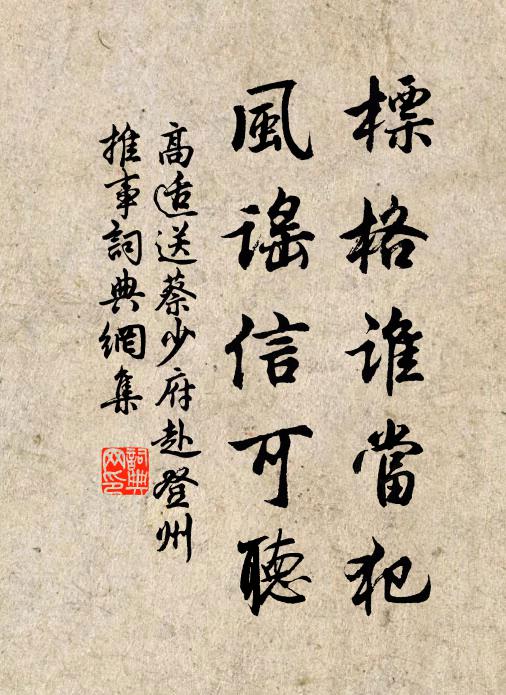 標格誰當犯
風謠信可聽
高適送蔡少府赴登州
推事詞典網集
詞典
网印